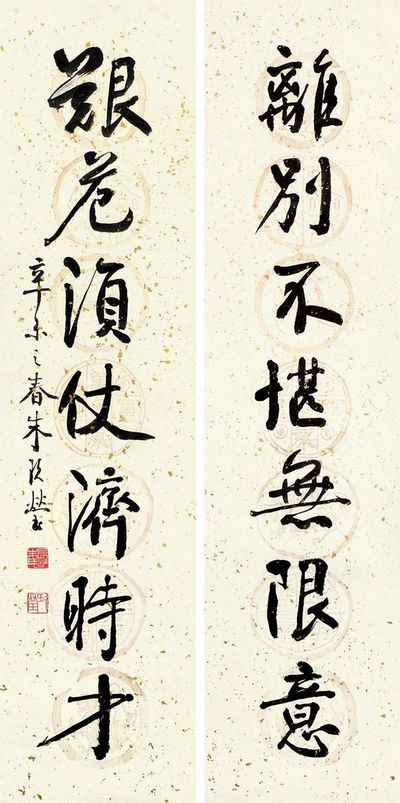 離別不堪無限意
艱危湏仗濟時才
辛未之春朱玖瑩